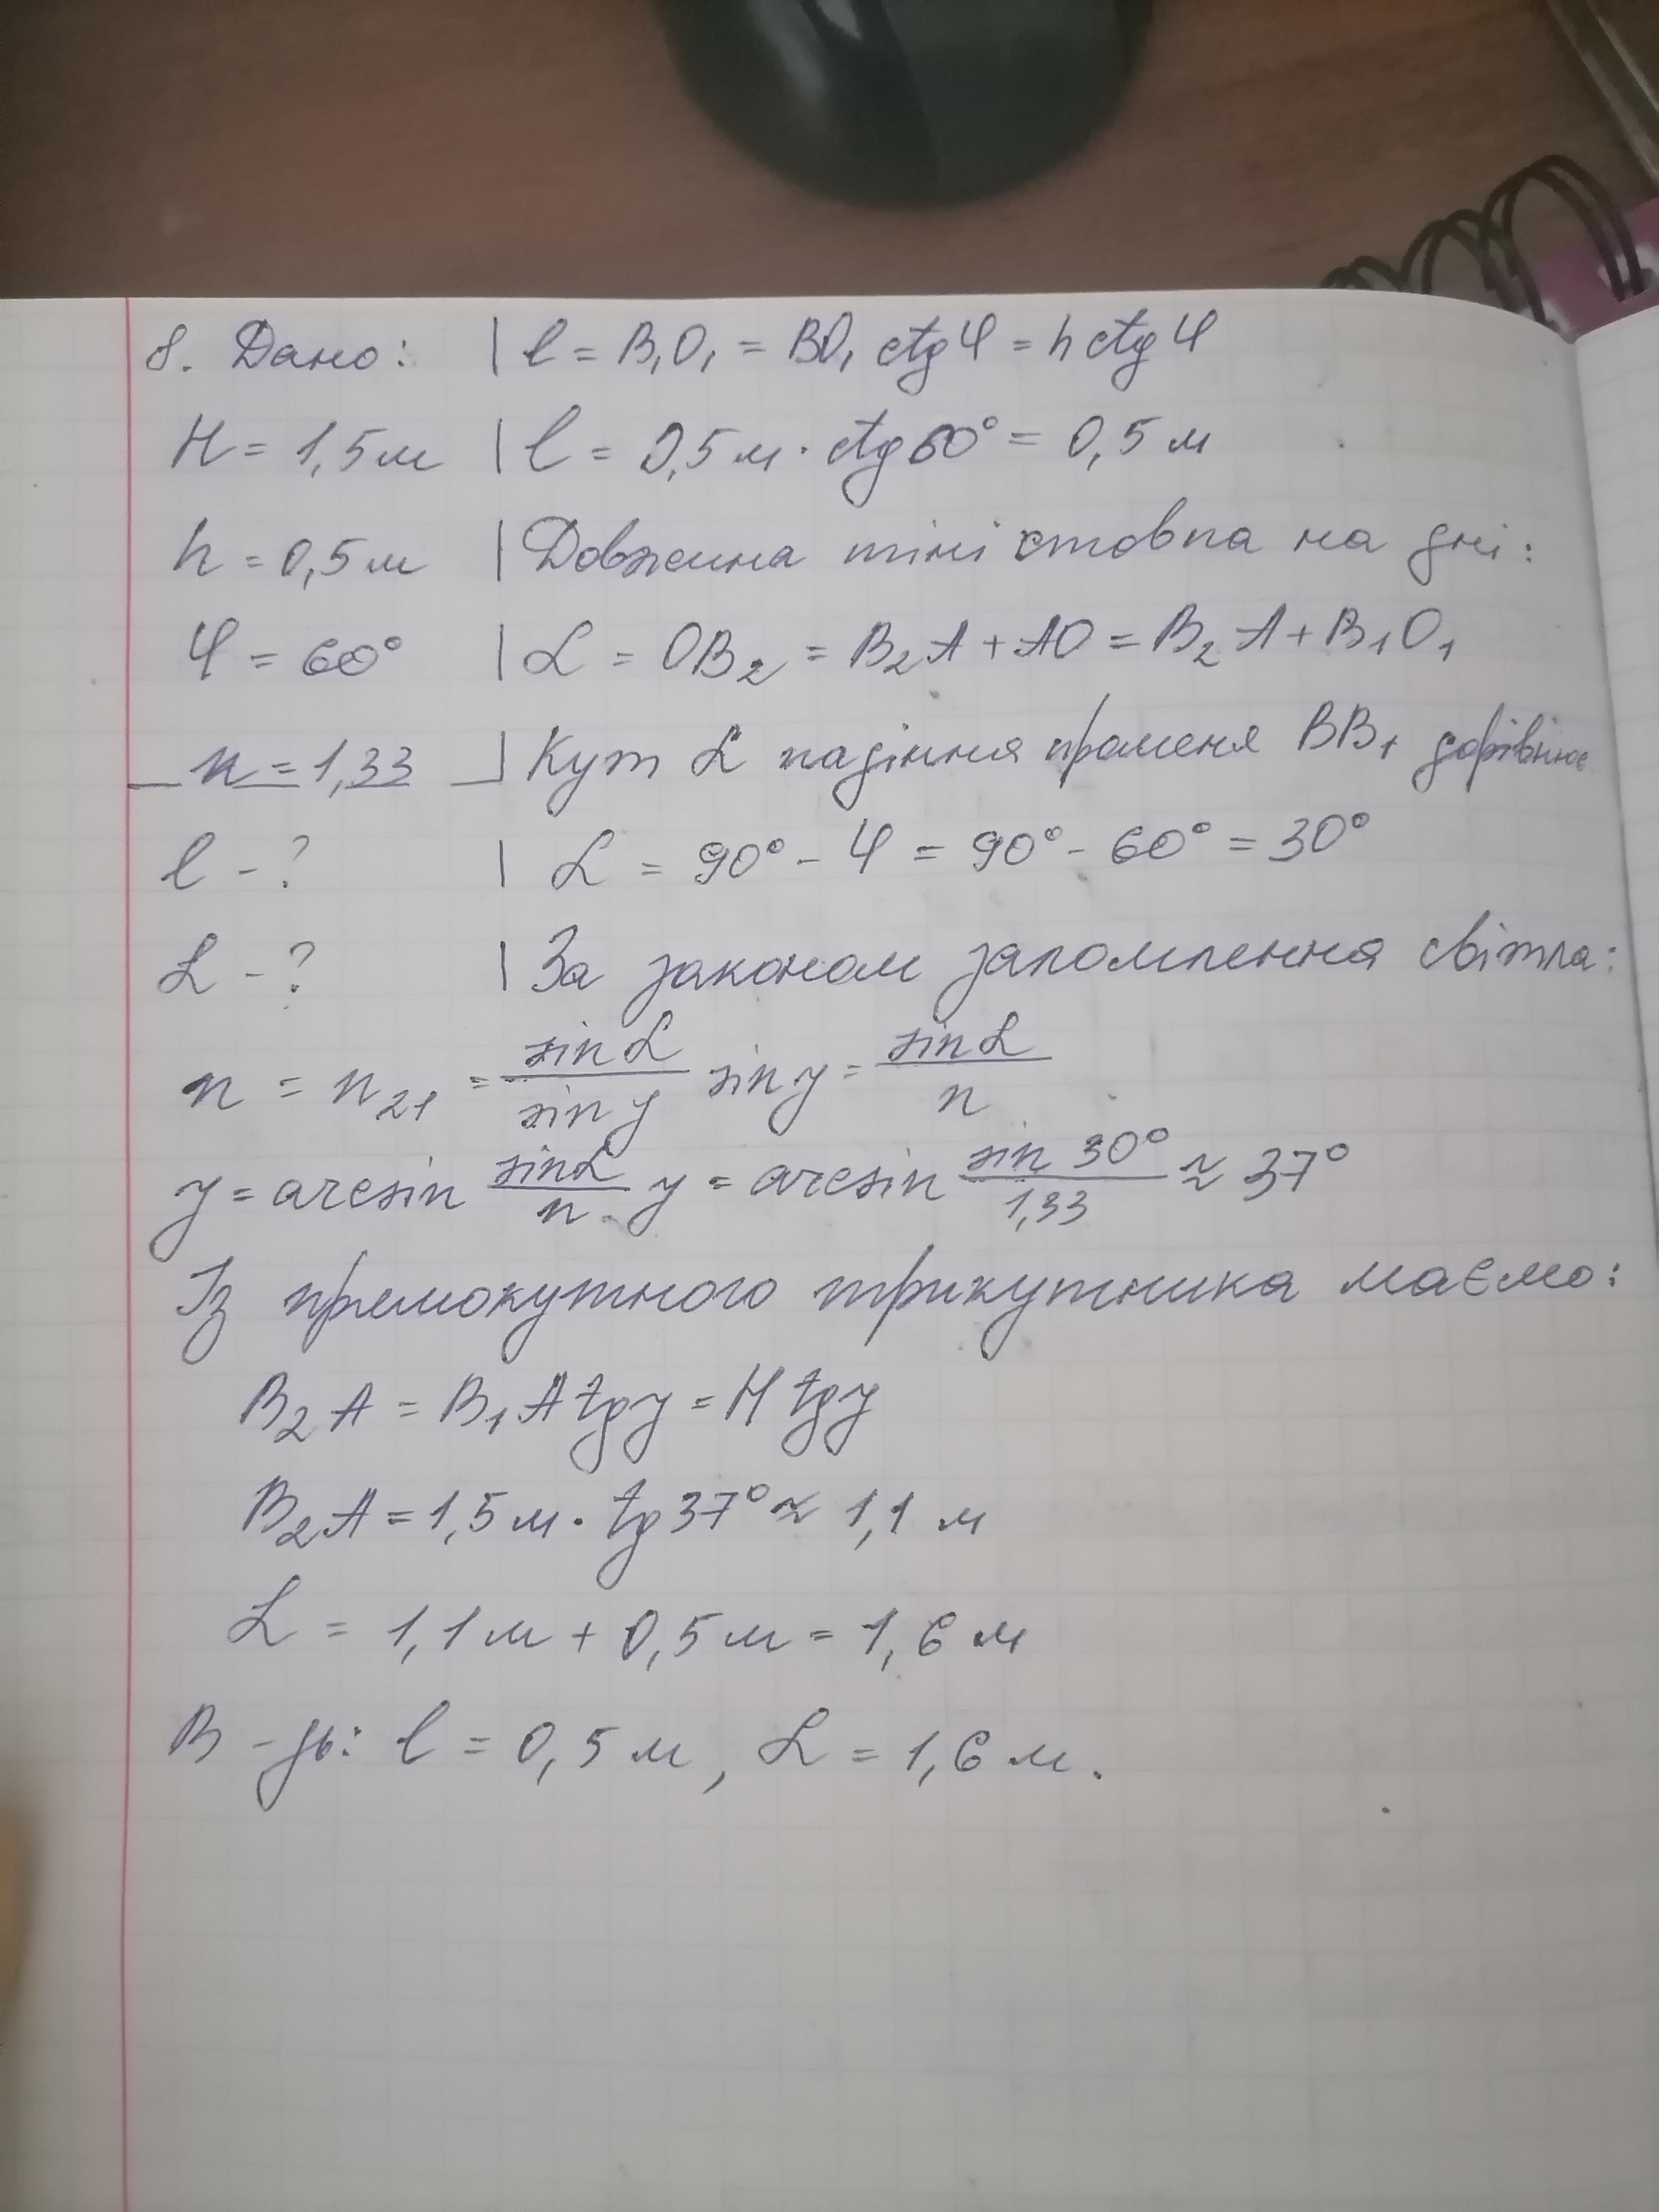 8. Дано: | l = B₁O₁ = BO₁ ctg φ = h ctg φ
H = 1,5 м | l = 0,5 м · ctg 60° = 0,5 м
h = 0,5 м | Довжина тіні стовпа на дні:
φ = 60° | L = OB₂ = B₂A + AO = B₂A + B₁O₁
n = 1,33 | Кут α падіння променя BB₁ дорівнює
l - ? | α = 90° - φ = 90° - 60° = 30°
L - ? | За законом заломлення світла:
n = n₂₁ = sin α / sin γ sin γ = sin α / n
γ = arcsin sin α / n γ = arcsin sin 30° / 1,33 ≈ 37°
Із прямокутного трикутника маємо:
B₂A = B₁A tg γ = H tg γ
B₂A = 1,5 м · tg 37° ≈ 1,1 м
L = 1,1 м + 0,5 м = 1,6 м
В-дь: l = 0,5 м, L = 1,6 м.